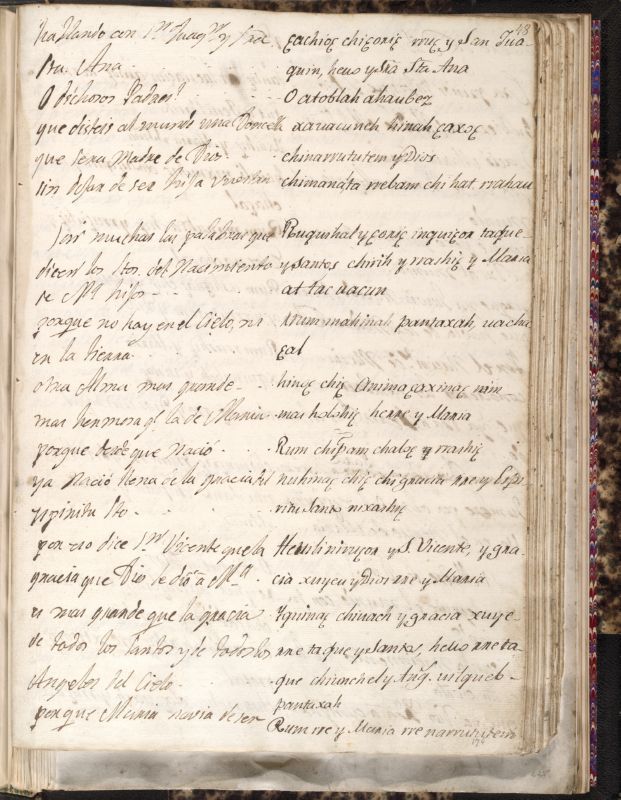 48
hablando con Sn. Juaqn. y Sra. ꜫachioꜫ chiꜫoriꜫ rruꜫ y San Jua-
Sta. Ana. quin, heuo y Sra Sta Ana
O dichosos Padres! O atoblah ahaubez
que disteis al mundo una Doncella xauacuneh hinah ꜫaxoꜫ
que sera Madre de Dios chinarrututem y Dios
sin dejar de ser hija vuestra chimanqta rrebam chi hat rrahau
Son muchas las palabras que Ruquihal y ꜫoriꜫ inquiꜫon taque-
dicen los Stos. del Nacimiento y Santos chirih y rrashiꜫ y Maria
de Ma. hijos - at tacuacun
porque no hay en el Cielo, ni Arum mahinah pantaxah, uachu
en la tierra. ꜫal
otra Alma mas grande - hinaꜫ chiꜫ Anima ꜫaxinaꜫ nim-
mas hermosa qe la de Maria mas holohiꜫ herre y Maria
porque desde que Nació Rum chipam chaloꜫ y rrashiꜫ
ya Nació llena de la gracia del nuhinaꜫ chiꜫ chi gracia rre y Espi-
Espiritu Sto. ritu Santo nixashiꜫ
por eso dice Sn. Vicente que la Heuli ninꜫon y S. Vicente, y gra-
gracia que Dios le dió a Ma. cia xuyeu y Dios rre y Maria
es mas grande que la gracia Yquinaꜫ chiuach y gracia xuye-
de todos los Santos y de todos los rre taque y Santo, heuo rre ta-
Angeles del Cielo. que chiunchel y Ang. uilqueb-
pantaxah
porque Maria havia de ser Rum rre y Maria rre narrututem